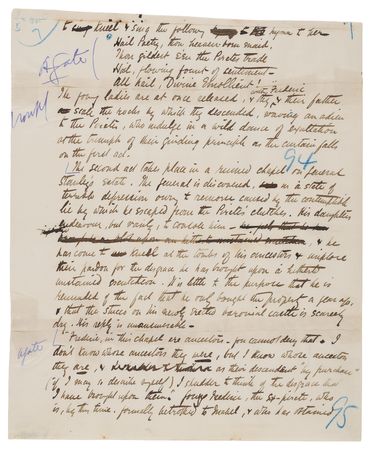 to kneel & sing the following hymn to her
Hail Poetry, thou heaven born maid,
Thou gildest e'en the Pirates trade
Hail, flowing fount of sentiment –
All hail, Divine Emollient!
with Frederic
Agate
The young ladies are at once released, & they, & their father,
scale the rocks by which they descended, waving an adieu
to the Pirates, who indulge in a wild dance of exultation
at the triumph of their guiding principle as the curtain falls
on the first act.
94
The second act takes place in a ruined chapel on General
Stanley's estate. The General is discovered, in a state of
terrible depression owing to remorse caused by the contemptible
lie by which he escaped from the Pirate's clutches. His daughters
endeavour, but vainly, to console him
& he
has come to kneel at the tombs of his ancestors & implore
their pardon for the disgrace he has brought upon a hitherto
unstained escutcheon. It is little to the purpose that he is
reminded of the fact that he only bought the property a year ago,
& that the stucco on his newly erected baronial castle is scarcely
dry. His reply is unanswerable –
agate
"Frederic, in this chapel are ancestors – you cannot deny that. I
don't know whose ancestors they were, but I know whose ancestors
they are, & as their descendant by purchase
(if I may so describe myself) I shudder to think of the disgrace that
I have brought upon them."
Young Frederic, the ex-pirate, who
is, by this time, formally betrothed to Mabel, & who has obtained
95